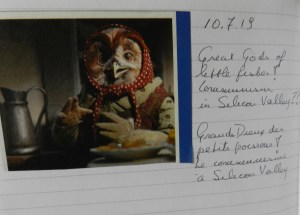 10.7.19
Great Gods of
little fishes!
Communism
in Silicon Valley?!
Grands Dieux des
petits poissons!
Le communisme
à Silicon Valley